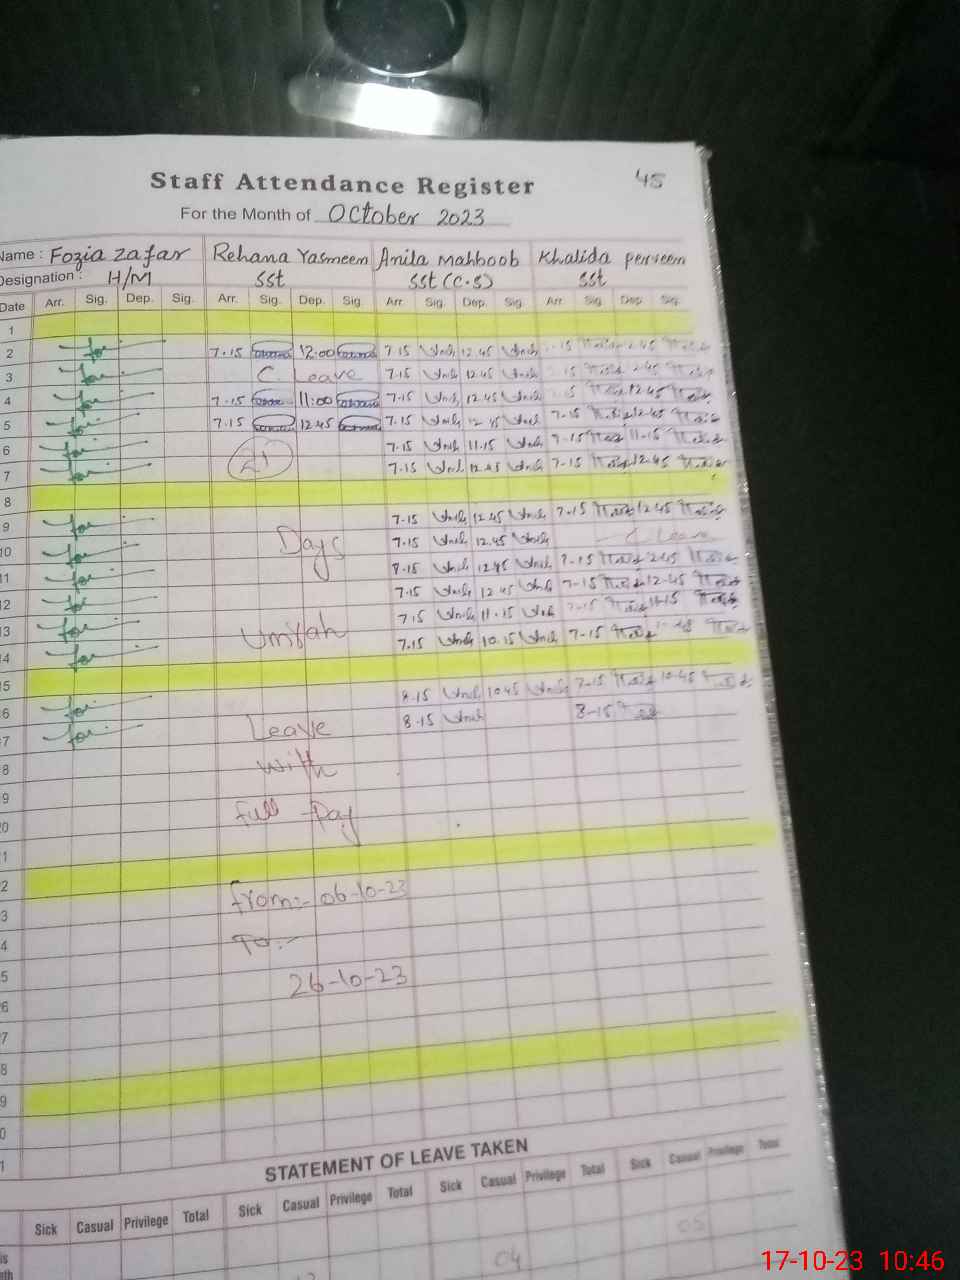 Staff Attendance Register
45
For the Month of October 2023
Name : Fozia Zafar Rehana Yasmeen Anila Mahboob Khalida perveen
Designation : H/M SST SST (C.S) SST
Date Arr. Sig. Dep. Sig. Arr. Sig. Dep. Sig. Arr. Sig. Dep. Sig. Arr. Sig. Dep. Sig.
1
2 7.15 12:00 7.15 12.45
3 C Leave 7.15 12.45
4 7.15 11:00 7.15 12.45 12.45
5 7.15 12.45 7.15 12.45 7-15 12.45
6 7.15 11.15 7-15 11-15
7 21 7.15 12.45 7-15 12.45
8
9 7.15 12.45 7-15 12.45
10 Days 7.15 12.45 C Leave
11 8.15 12.45 7-15
12 7.15 12.45 7-15 12-45
13 7.15 11.15 7-15 11-15
4 Umrah 7.15 10.15 7-15
5
6 8.15 10.45 7-15 10-45
7 Leave 8.15 8-15
8 with
9
0 Full Pay
1
2
3 From:- 06-10-23
4 To:-
5 26-10-23
6
7
8
9
0
1
STATEMENT OF LEAVE TAKEN
Sick Casual Privilege Total Sick Casual Privilege Total Sick Casual Privilege Total Sick Casual Privilege Total
04 05
17-10-23 10:46